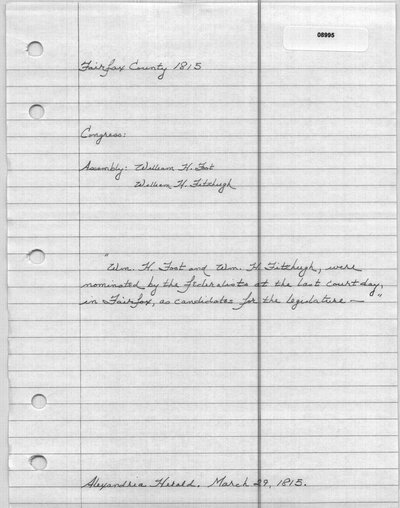 08995
Fairfax County 1815
Congress:
Assembly: William H. Foot
William H. Fitzhugh
"Wm. H. Foot and Wm. H. Fitzhugh, were
nominated by the federalists at the last court day,
in Fairfax, as candidates for the legislature — "
Alexandria Herald. March 29, 1815.